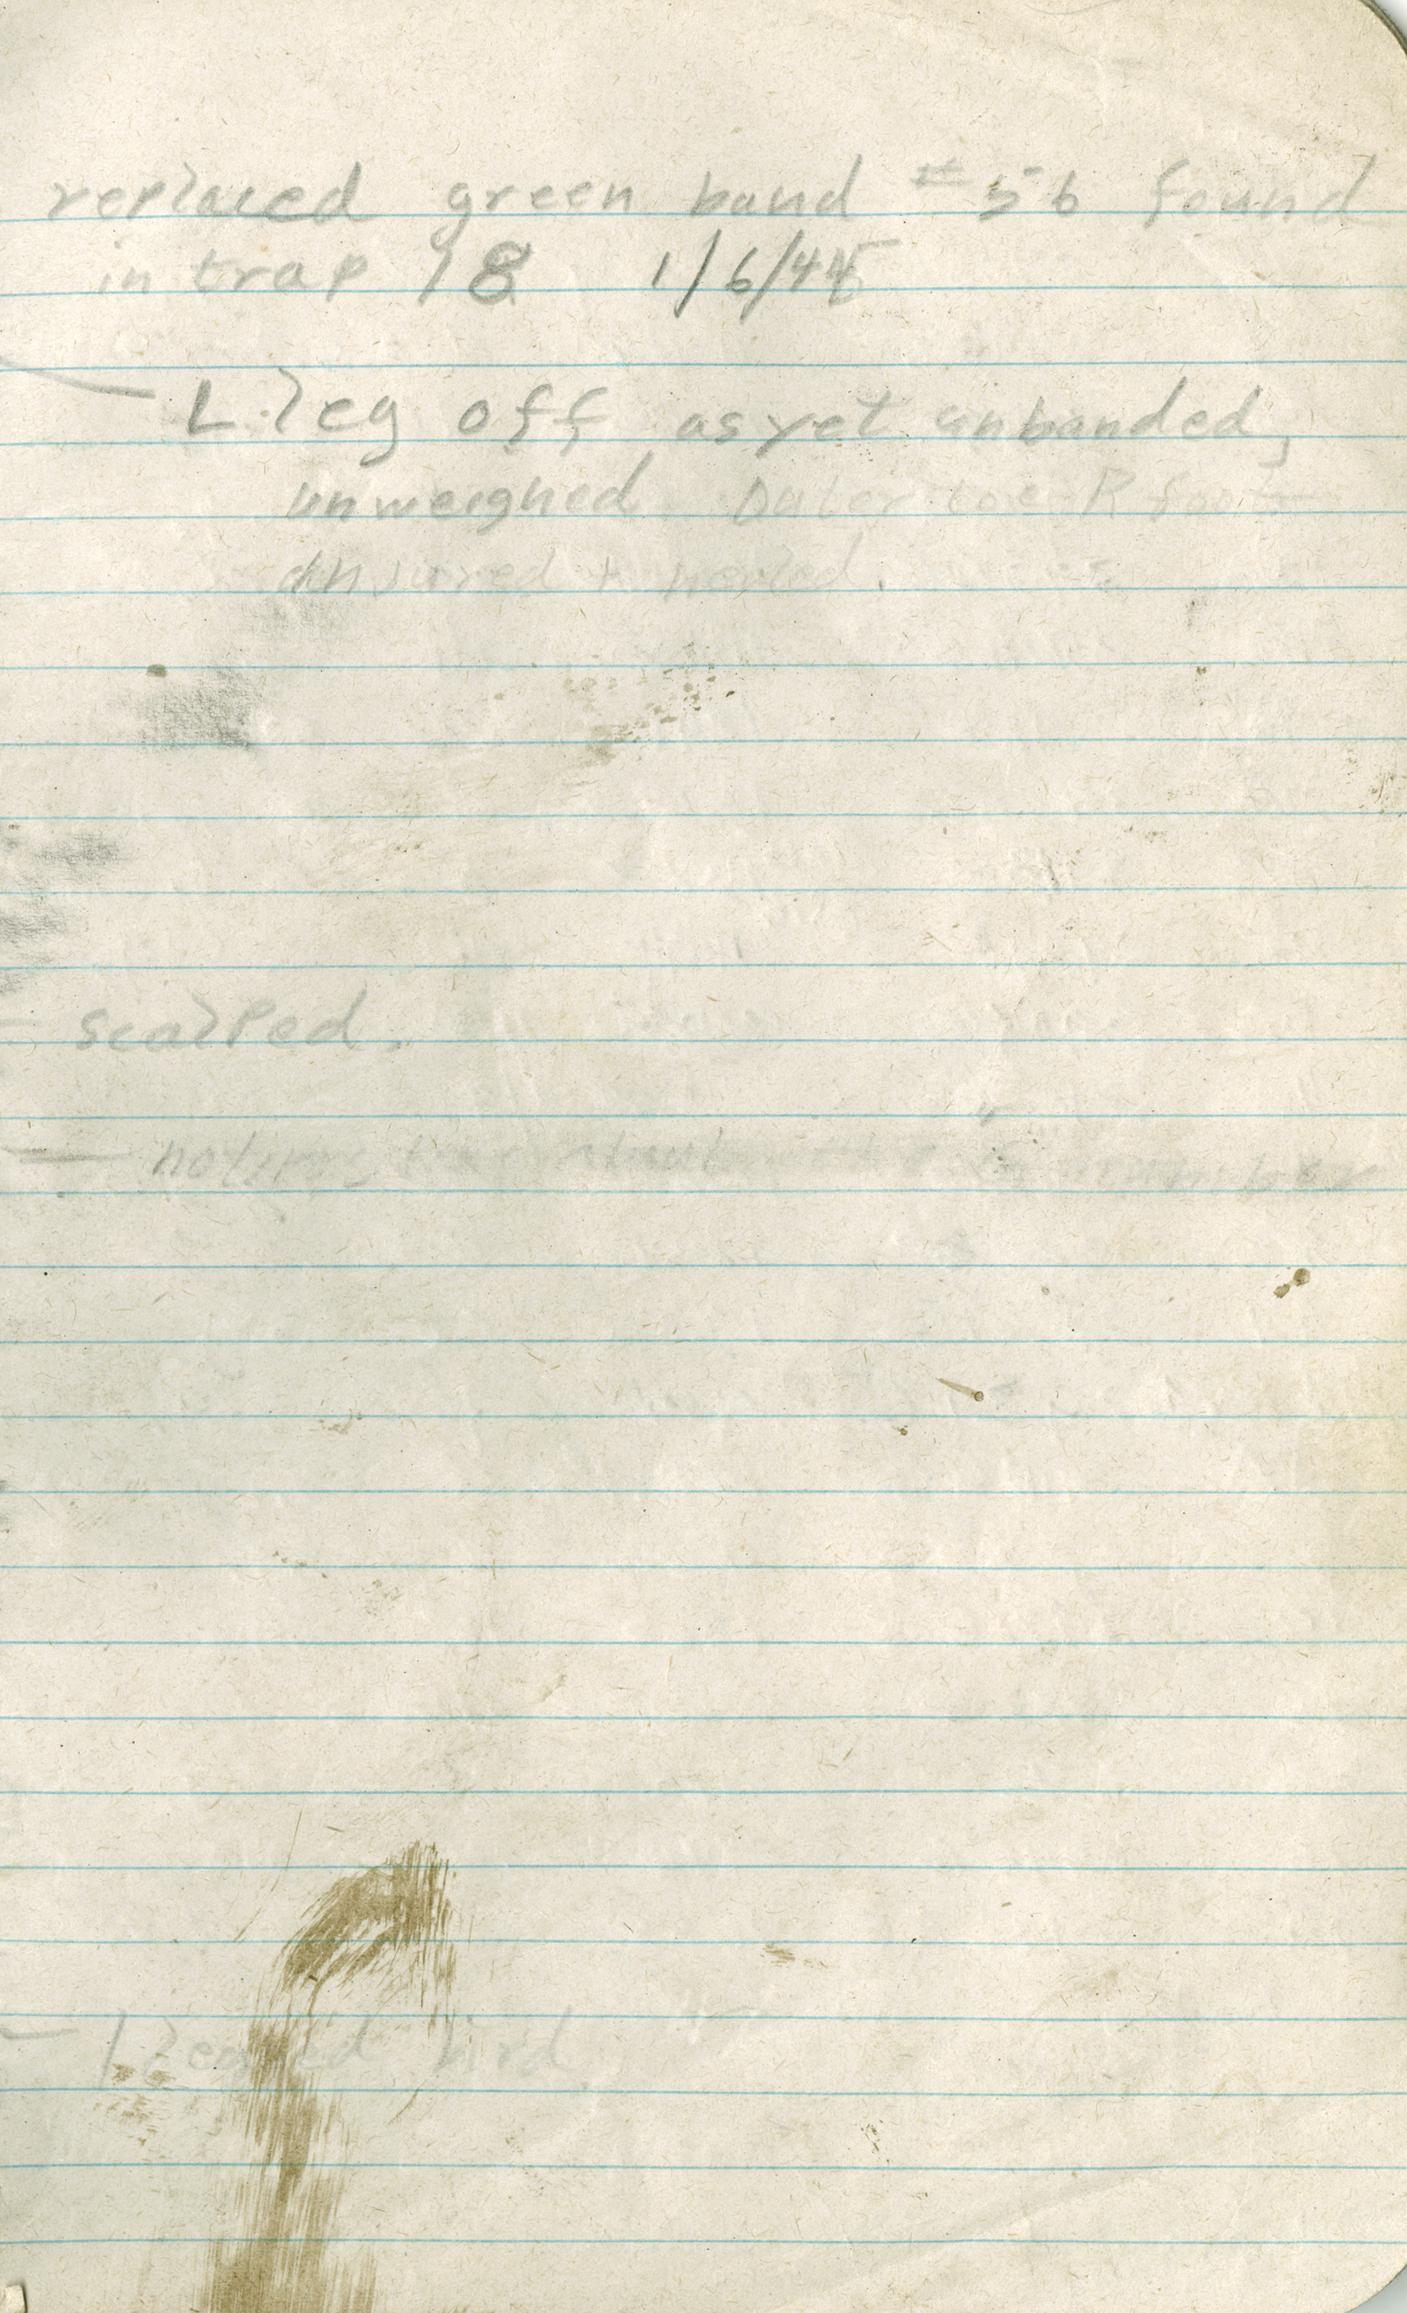 replaced green band # 56 found
in trap 18 1/6/45
L leg off as yet unbanded,
unweighed Outer toe R foot
injured + healed.
scalped.
number
1 legged bird